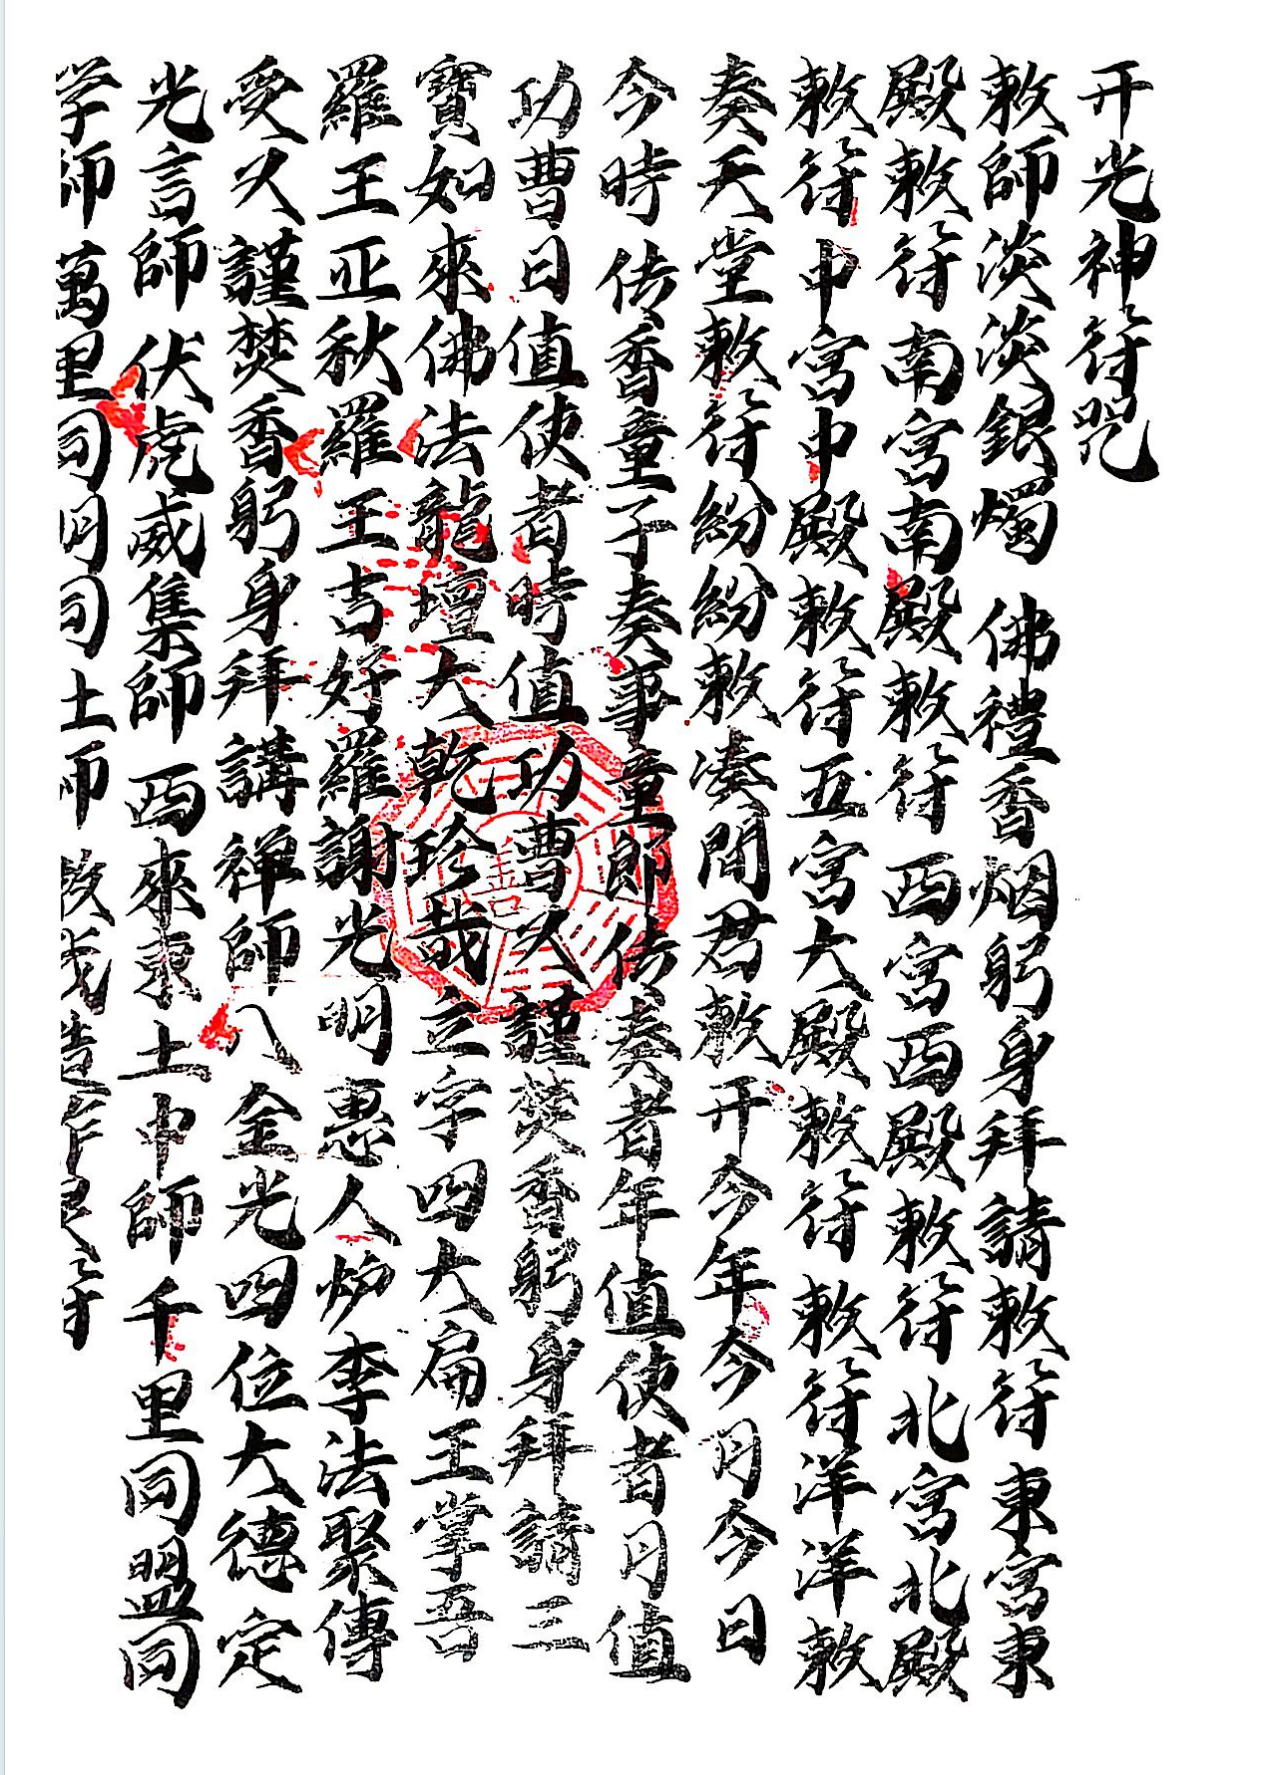 开光神符咒
敕師淡淡銀燭 佛禮香烟躬身拜請敕符 東宮東
殿敕符南宮南殿敕符 西宮西殿敕符北宮北殿
敕符中宮中殿敕符五宮大殿敕符敕符洋洋敕
奏天堂敕符紛紛敕湊間君敕开今年今月今日
今時传香童子奏事童郎传奏者年值使者月值
功曹日值使者時值功曹久謹焚香躬身拜請三
寶如來佛法龍壇大乾珍哉立字四大扁王掌吾
羅王亚秋羅王吉好羅謝光明惠人炉李法聚傳
受久謹焚香躬身拜講禅師八金光四位大德定
光言師伏虎威集師 西來東土中師千里同盟同
学師萬里同明司土師